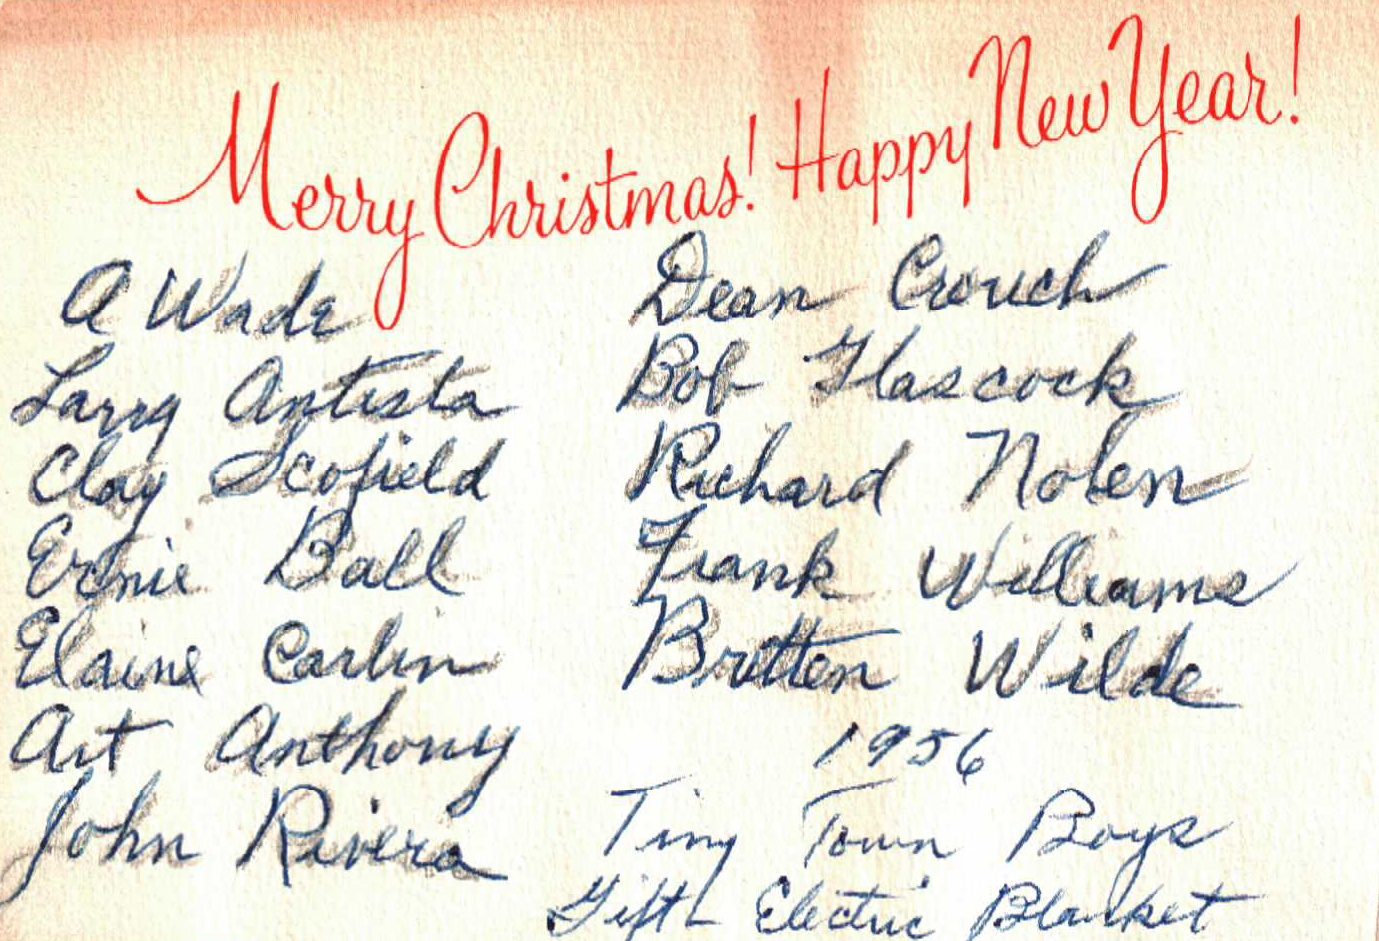 Merry Christmas! Happy New Year!
A Wade
Larry Antista
Clay Scofield
Ernie Ball
Elaine Carlin
Art Anthony
John Rivera
Dean Crouch
Bob Glascock
Richard Nolen
Frank Williams
Britten Wilde
1956
Tiny Town Boys
Gift - Electric Blanket